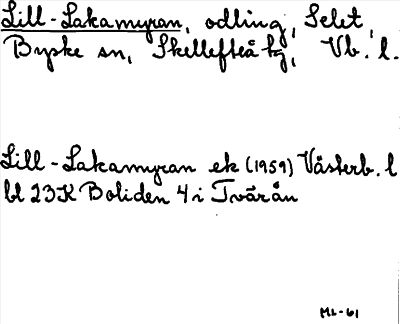 Lill-Lakamyran, odling, Selet,
Byske sn, Skellefteå tg, Vb. l.
Lill-Lakamyran ek (1959) Västerb. l
bl 23K Boliden 4i Tvärån
ML-61